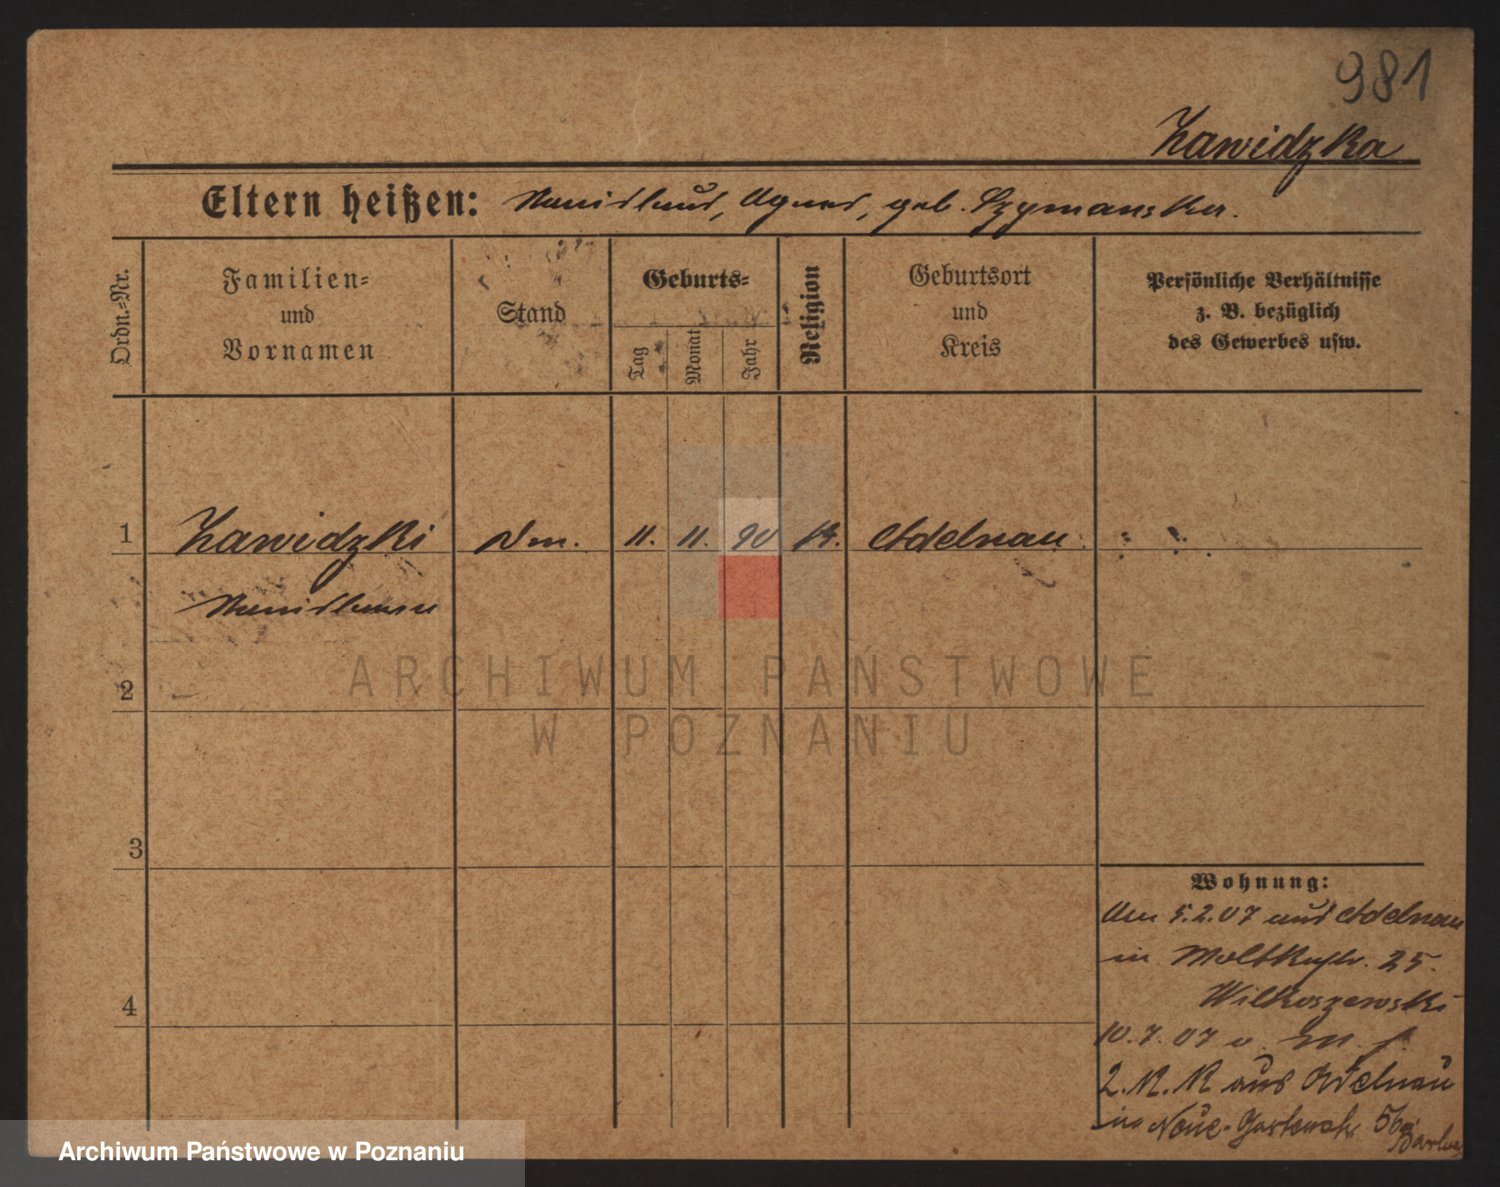 981
Zawidzka
Eltern heißen: Stanislaus, Agnes, geb. Szymanska.
Ordn.-Nr.
Familien-
und
Vornamen
Stand
Geburts-
Tag
Monat
Jahr
Religion
Geburtsort
und
Kreis
Persönliche Verhältnisse
z. B. bezüglich
des Gewerbes usw.
1 Zawidzki 11. 11. 90 K. Adelnau
Stanislaus
2
3
4
Wohnung:
Am 5.2.07 aus Adelnau
in Moltkestr. 25.
Wilkoszewski
10.7.07
aus Adelnau
in Neue-Gartenstr. 56
ARCHIWUM PAŃSTWOWE
W POZNANIU
Archiwum Państwowe w Poznaniu